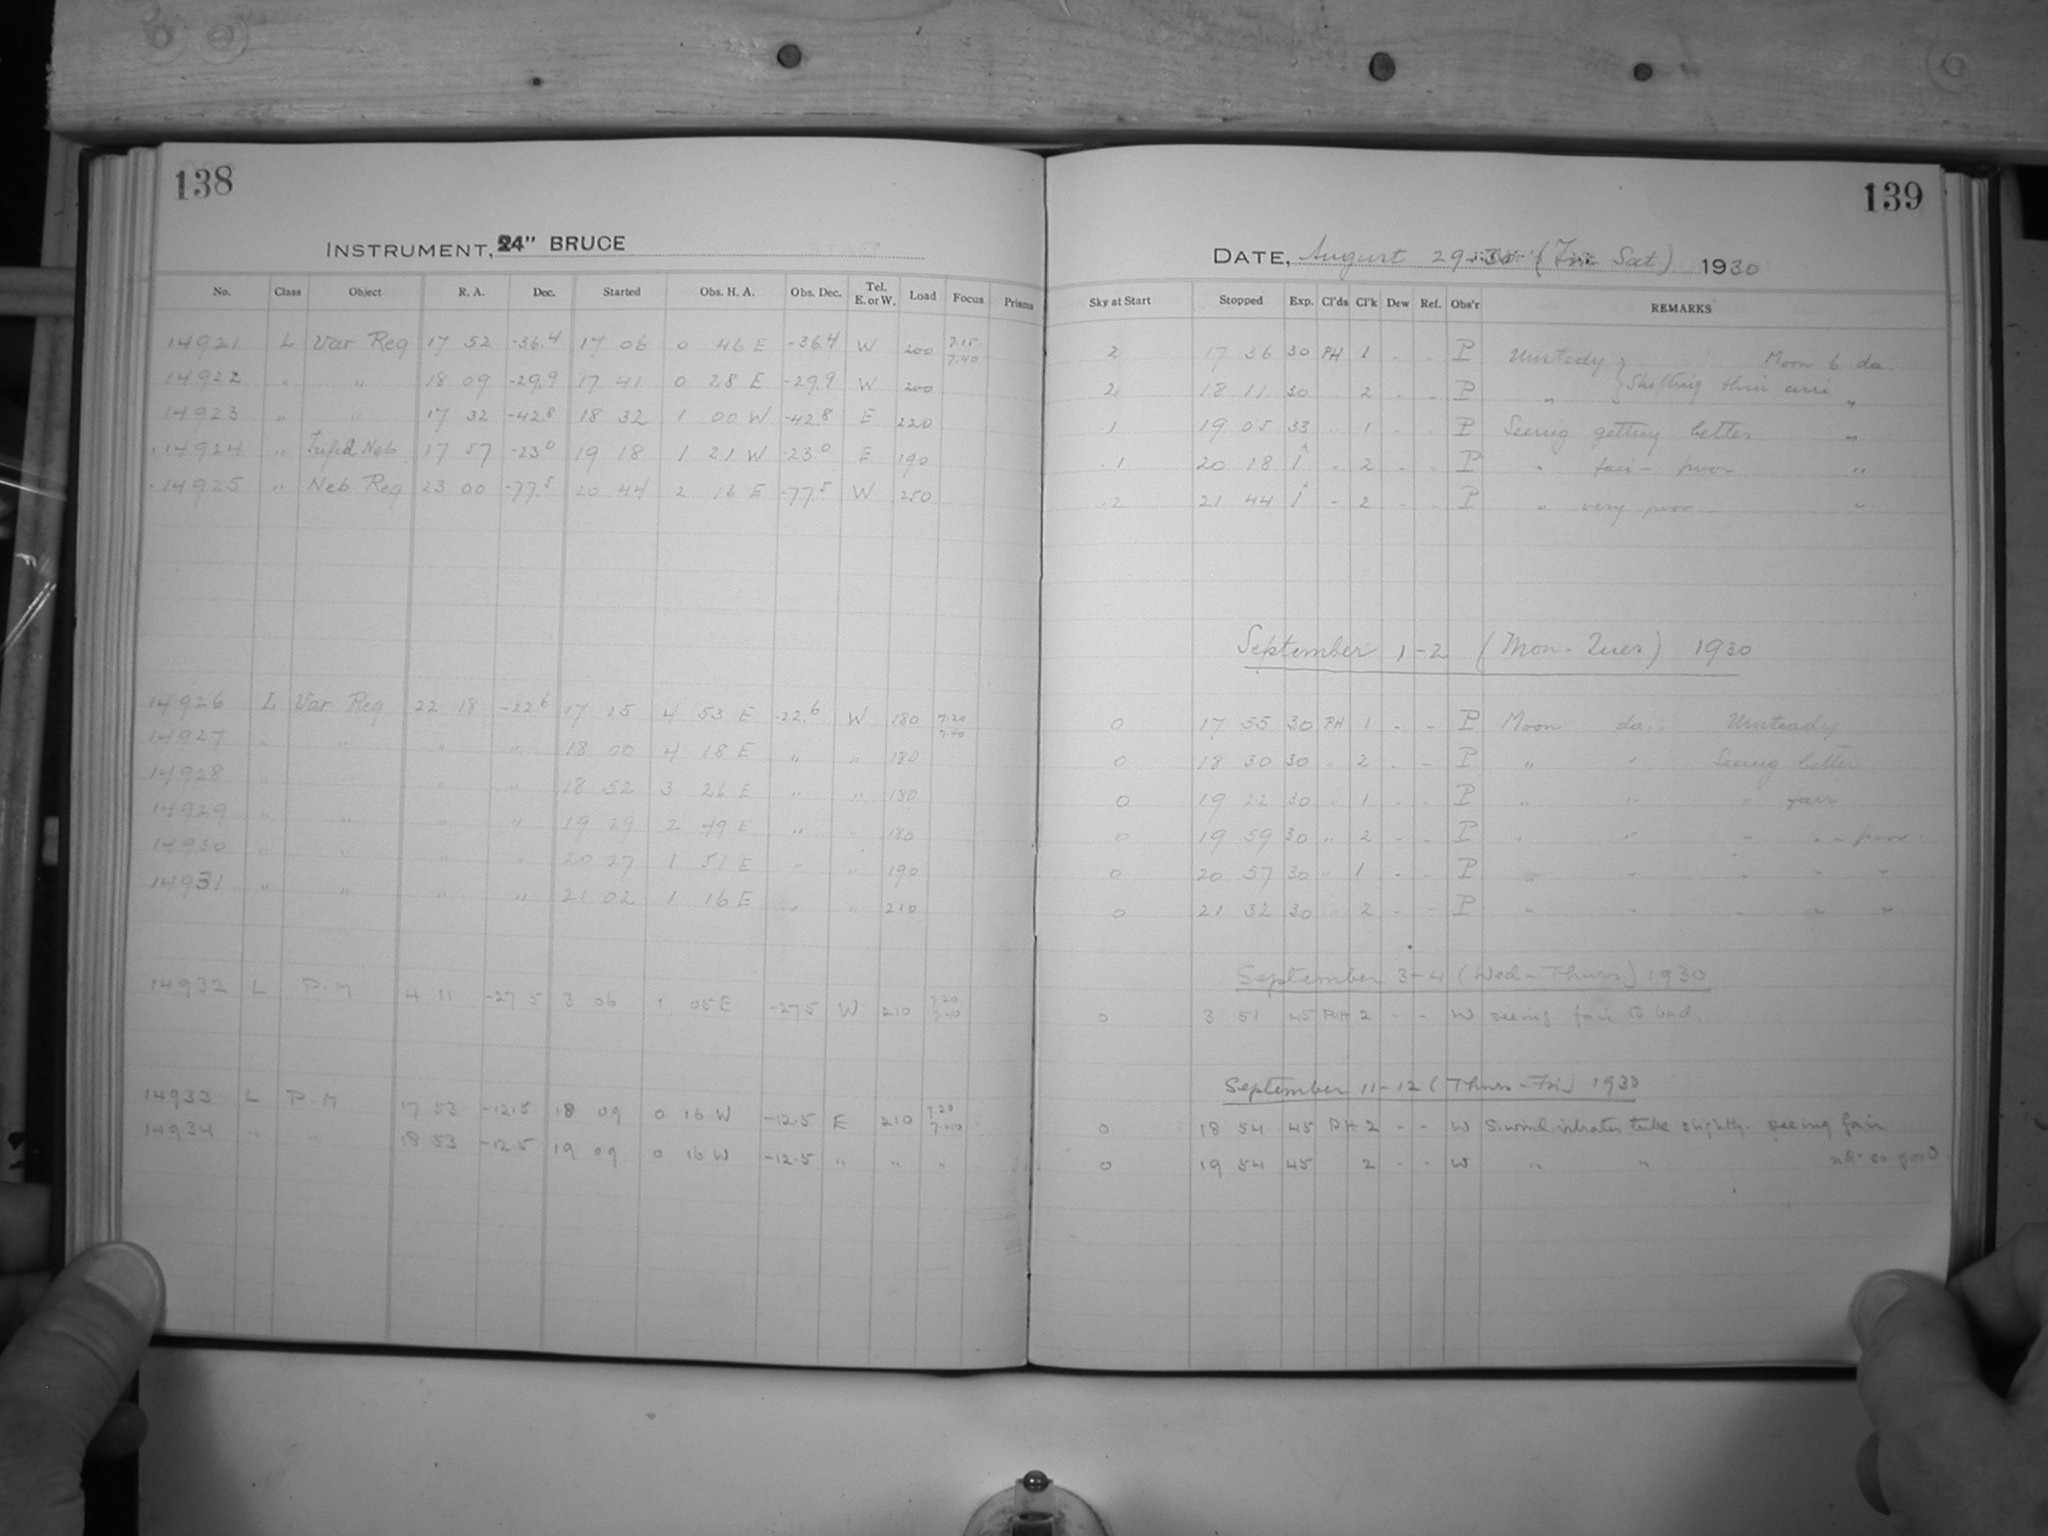 138
INSTRUMENT, 24" BRUCE
No. Class Object R. A. Dec. Started Obs. H. A. Obs. Dec. Tel. E. or W. Load Focus Prisms
14921 L Var Reg 17 52 -36.4 17 06 0 46 E -36.4 W 200 7.15 7.40
14922 " " 18 09 -29.9 17 41 0 28 E -29.9 W 200
14923 " " 17 32 -42.8 18 32 1 00 W -42.8 E 220
14924 " Neb 17 57 -23.0 19 18 1 21 W -23.0 E 190
14925 " Neb Reg 23 00 -77.5 20 44 2 16 E -77.5 W 250
14926 L Var Reg 22 18 -22.6 17 25 4 53 E -22.6 W 180 7.20 7.40
14927 " " " " 18 00 4 18 E " " 180
14928 " " " " 18 52 3 26 E " " 180
14929 " " " " 19 29 2 49 E " " 180
14930 " " " " 20 27 1 51 E " " 190
14931 " " " " 21 02 1 16 E " " 210
14932 L P.M 4 11 -27 5 3 06 1 05 E -27 5 W 210 7.20 7.40
14933 L P.M 17 53 -12.5 18 09 0 16 W -12.5 E 210 7.20 7.40
14934 " " 18 53 -12.5 19 09 0 16 W -12.5 " " "
139
DATE, August 29-30 (Fri Sat) 1930
Sky at Start Stopped Exp. Cl'ds Cl'k Dew Ref. Obs'r REMARKS
2 17 36 30 PH 1 - - P Unsteady Moon 6 da.
2 18 11 30 " 2 - - P " Shifting thin cirri "
1 19 05 33 " 1 - - P Seeing getting better "
1 20 18 1^ " 2 - - P " fair - poor "
2 21 44 1^ - 2 - - P " very poor "
September 1-2 (Mon-Tues) 1930
0 17 55 30 PH 1 - - P Moon da. Unsteady
0 18 30 30 " 2 - - P " " Seeing better
0 19 22 30 " 1 - - P " " " fair
0 19 59 30 " 2 - - P " " " " - poor
0 20 57 30 " 1 - - P " " " " "
0 21 32 30 " 2 - - P " " " " "
September 3-4 (Wed-Thurs) 1930
0 3 51 45 PH 2 - - W seeing fair to bad.
September 11-12 (Thurs-Fri) 1930
0 18 54 45 PH 2 - - W S. wind vibrates tube slightly. seeing fair
0 19 54 45 2 - - W " " not so good